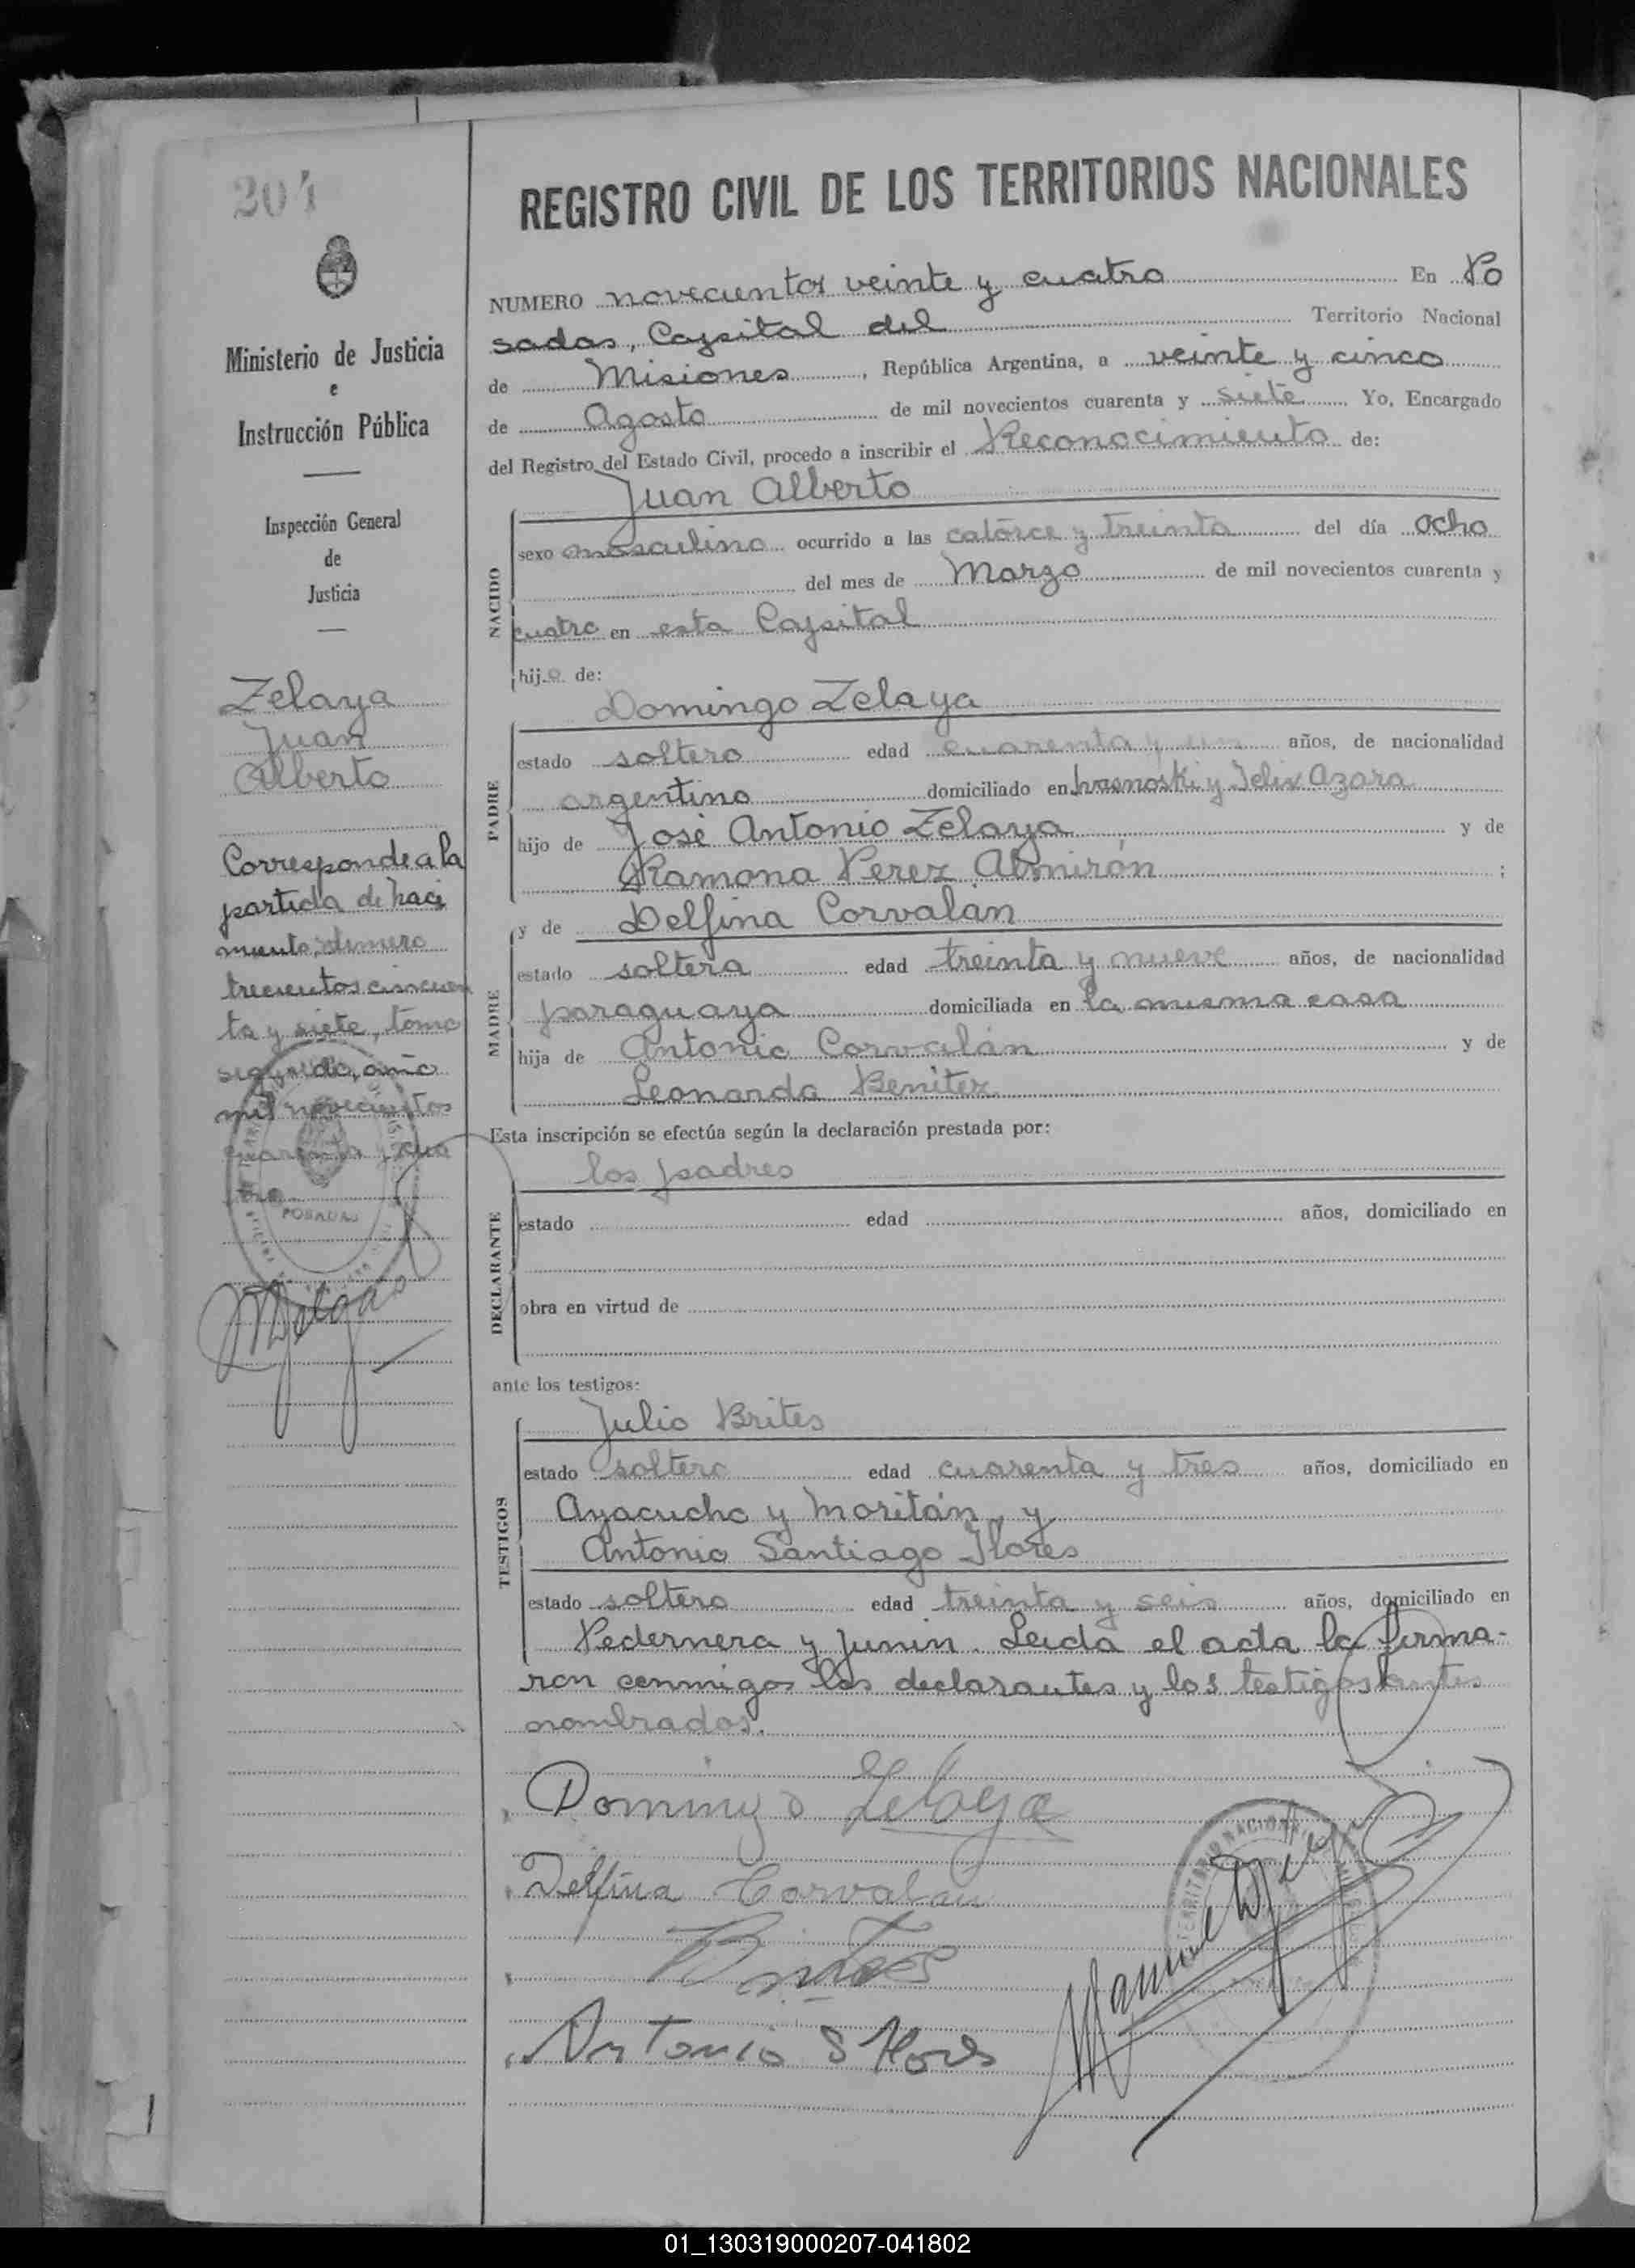 204
Ministerio de Justicia
e
Instrucción Pública
Inspección General
de
Justicia
Zelaya
Juan
Alberto
Corresponde a la
partida de naci
miento número
trecientos cincuen
ta y siete, tomo
segundo, año
mil novecientos
cuarenta y cua
tro.
POSADAS
REGISTRO CIVIL DE LOS TERRITORIOS NACIONALES
NUMERO novecientos veinte y cuatro En Po
sadas, Capital del Territorio Nacional
de Misiones, República Argentina, a veinte y cinco
de Agosto de mil novecientos cuarenta y siete Yo, Encargado
del Registro del Estado Civil, procedo a inscribir el Reconocimiento de:
Juan Alberto
NACIDO
sexo masculino ocurrido a las catorce y treinta del día ocho
del mes de Marzo de mil novecientos cuarenta y
cuatro en esta Capital
hijo de:
Domingo Zelaya
PADRE
estado soltero edad cuarenta y un años, de nacionalidad
argentino domiciliado en y Felix Azara
hijo de José Antonio Zelaya y de
Ramona Perez Almirón ;
y de Delfina Corvalan
MADRE
estado soltera edad treinta y nueve años, de nacionalidad
paraguaya domiciliada en la misma casa
hija de Antonio Corvalán y de
Leonarda Benitez
Esta inscripción se efectúa según la declaración prestada por:
los padres
DECLARANTE
estado edad años, domiciliado en
obra en virtud de
ante los testigos:
Julio Brites
TESTIGOS
estado soltero edad cuarenta y tres años, domiciliado en
Ayacucho y Moritán, y
Antonio Santiago Flores
estado soltero edad treinta y seis años, domiciliado en
Pedernera y Junin. Leida el acta la firma-
ron conmigo los declarantes y los testigos antes
nombrados.
Domingo Zelaya
Delfina Corvalan
Brites
Antonio S Flores
TERRITORIO NACIONAL
01_130319000207-041802